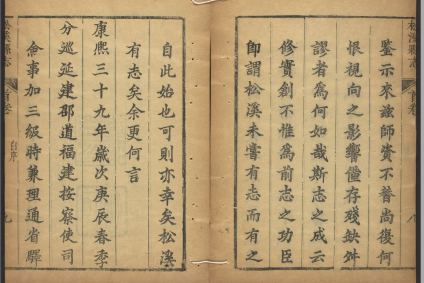 松溪縣志
首卷
八
鑒示來茲師資不替尚復何
恨視向之影響僅存殘缺舛
謬者為何如哉斯志之成云
修實創不惟為前志之功臣
即謂松溪未嘗有志而有之
自此始也可則亦幸矣松溪
有志矣余更何言
康熙三十九年歲次庚辰春季
分巡延建邵道福建按察使司
僉事加三級時兼理通省驛
松溪縣志
首卷
自序
九